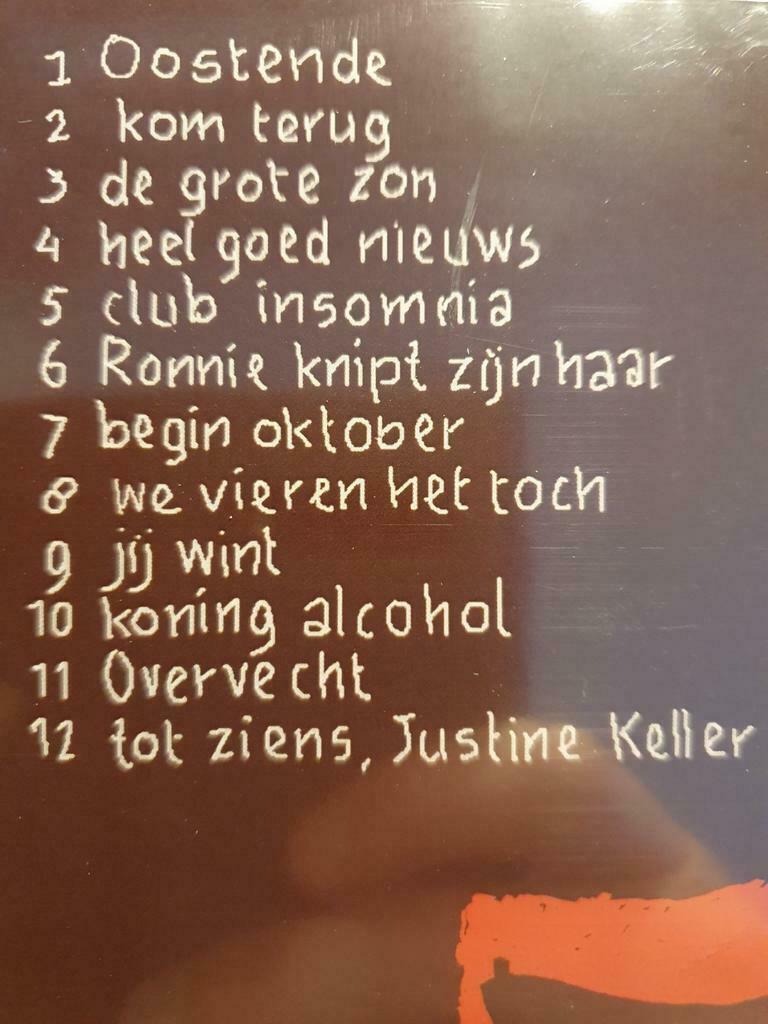 1 Oostende
2 kom terug
3 de grote zon
4 heel goed nieuws
5 club insomnia
6 Ronnie knipt zijn haar
7 begin oktober
8 we vieren het toch
9 jij wint
10 koning alcohol
11 Overvecht
12 tot ziens, Justine Keller